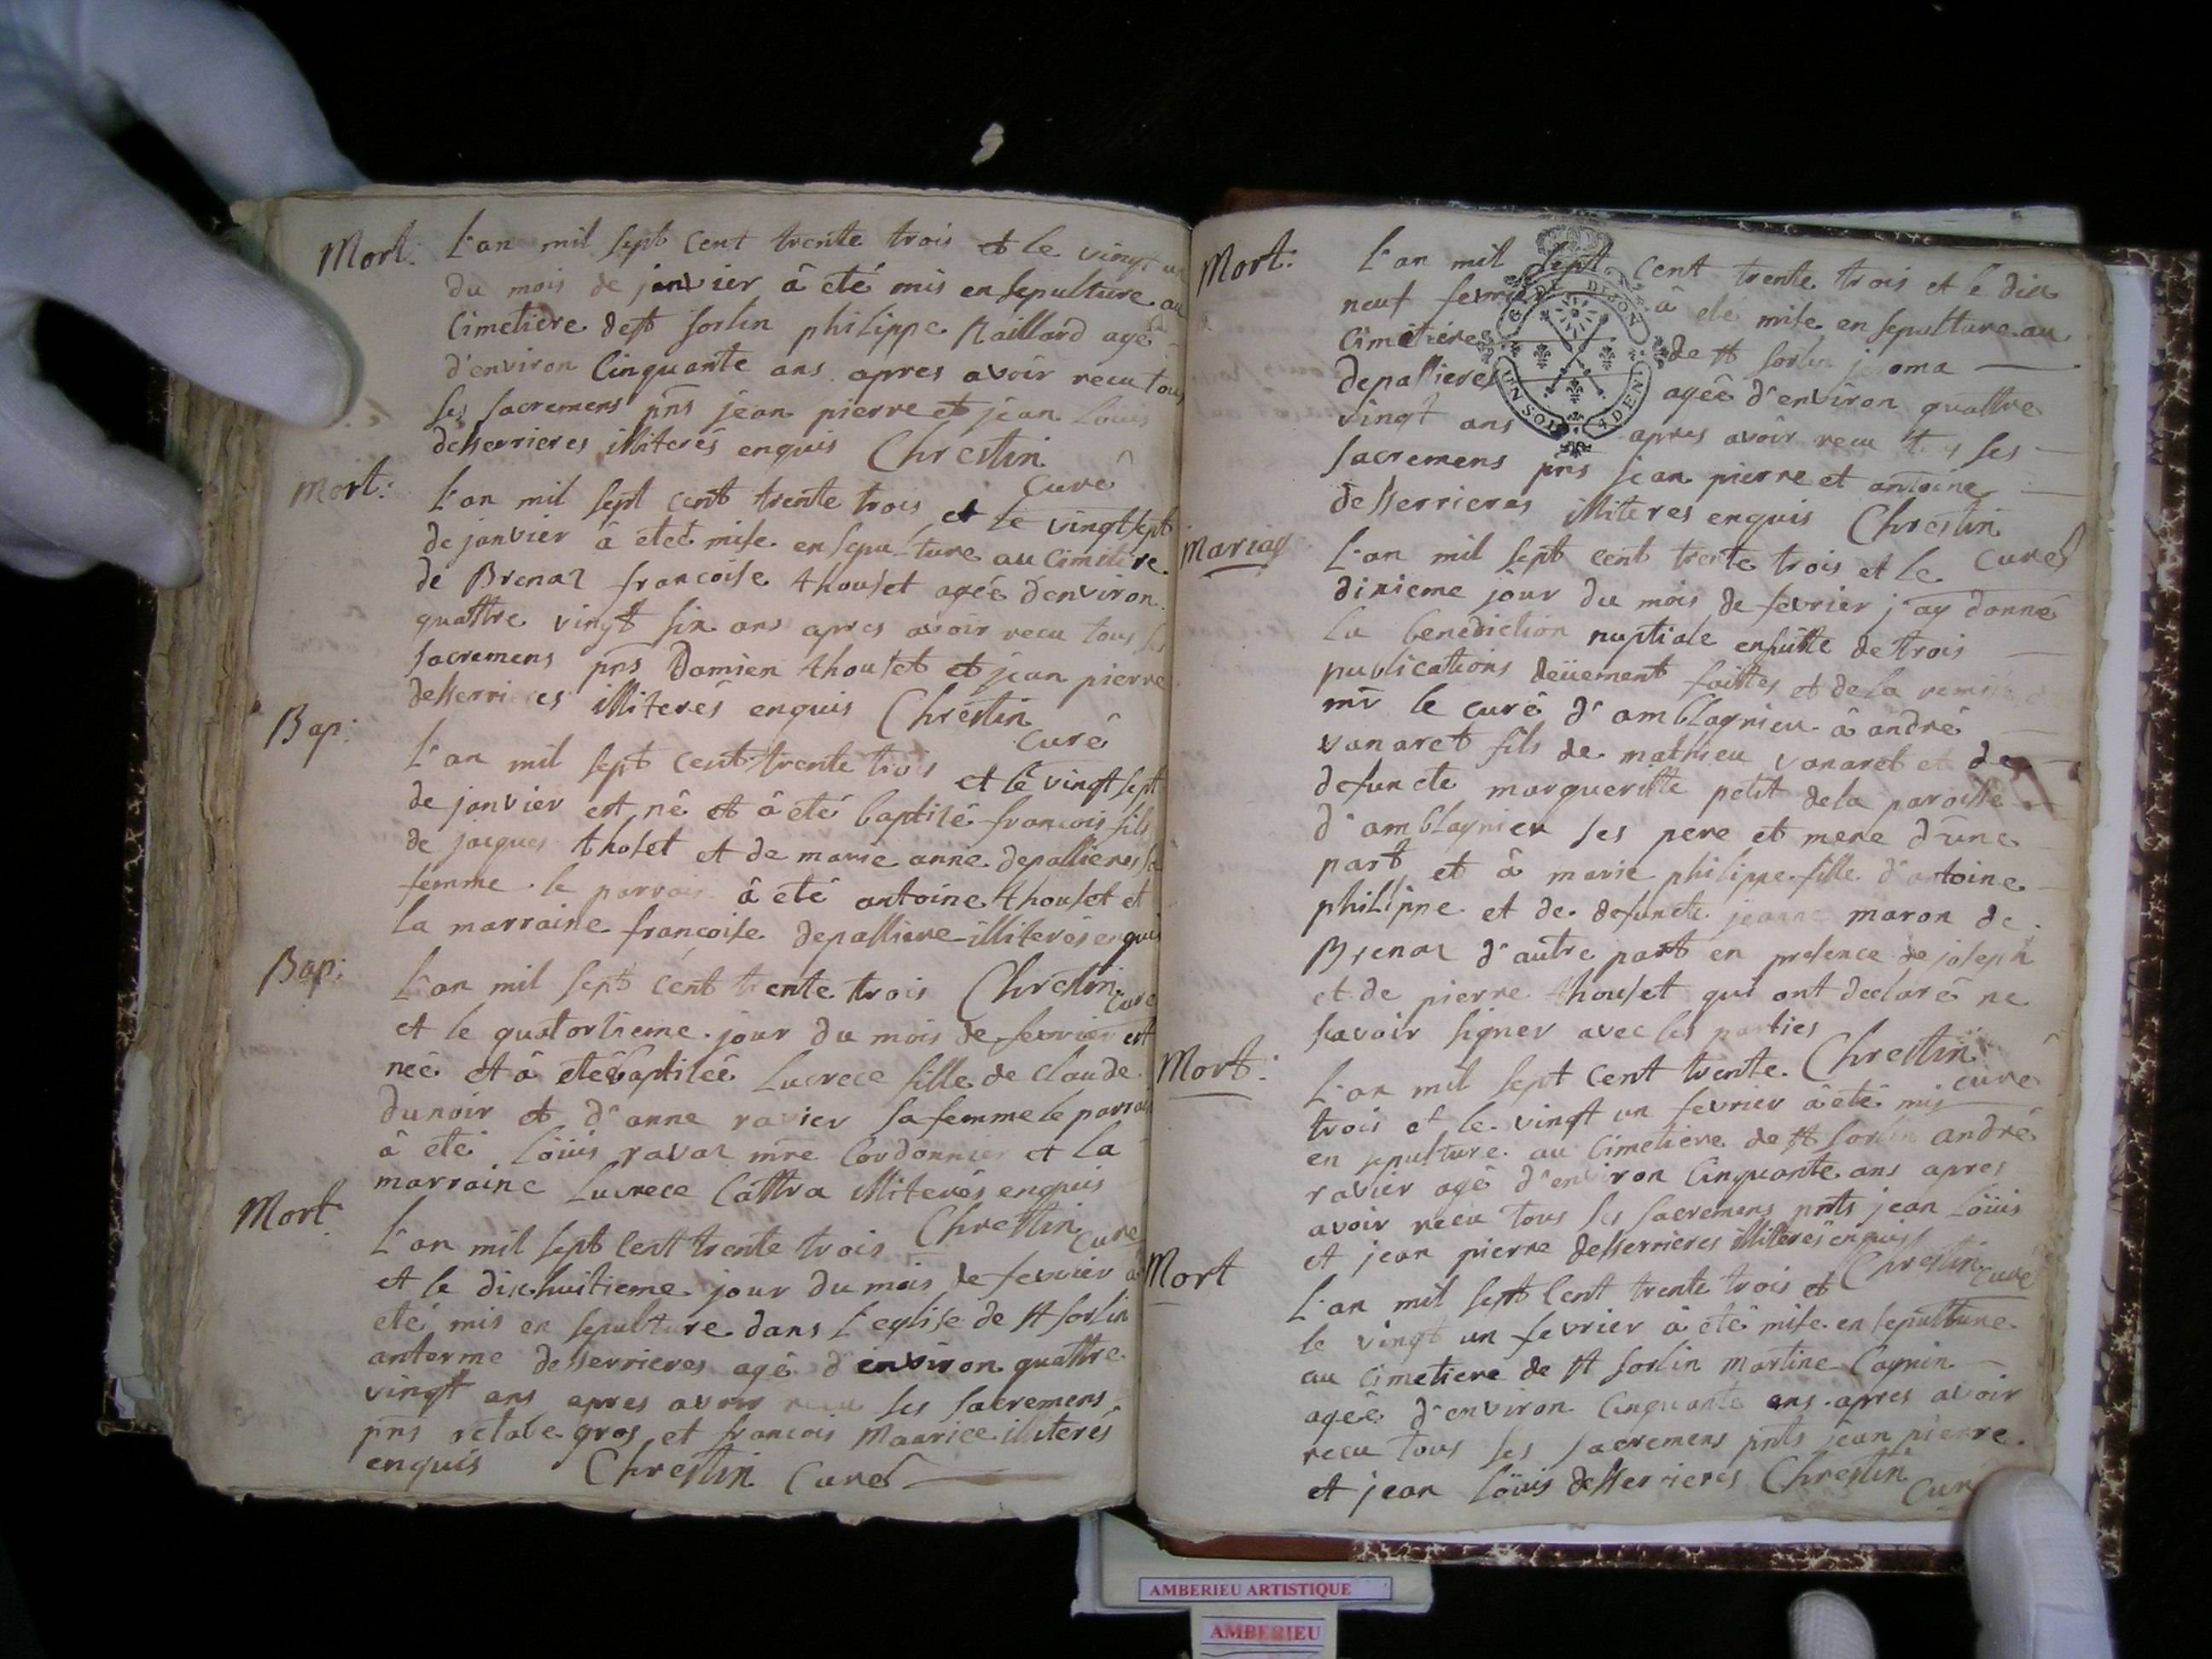 Mort. L'an mil sept cent trente trois et le vingt un
du mois de janvier à eté mis en sepulture au
Cimetiere de st sorlin philippe Naillard agé
d'environ Cinquante ans apres avoir recu tous
ses sacremens pn̄s jean pierre et jean Loüis
desserrieres illiterés enquis Chrestin
Curé
Mort: L'an mil sept cent trente trois et le vingt sept
de janvier à eteé mise en sepulture au cimetiere
de Brenaz francoise thouset ageé d'environ
quattre vingt six ans apres avoir recu tous ses
sacremens pn̄s Damien thouset et jean pierre
desserrieres illiterés enquis Chrestin
Curé
Bap: L'an mil sept cent trente trois et le vingt sept
de janvier est né et à eté baptisé francois fils
de jacques thoset et de marie anne depallieres sa
femme le parrain à eté antoine thouset et
la marraine francoise depalliere illiterés enquis
Bap: L'an mil sept cent trente trois Chrestin Curé
et le quatorsieme jour du mois de fevrier est
neé et à eté baptiseé Lucrece fille de claude
dunoir et d'anne ravier sa femme le parrain
à eté Loüis ravaz mr̄e Cordonnier et la
marraine Lucrece Cattra illiterés enquis
Mort L'an mil sept cent trente trois Chrestin Curé
et le dixhuitieme jour du mois de fevrier à
eté mis en sepulture dans l'eglise de st sorlin
anterme desserrieres agé d'environ quattre
vingt ans apres avoir recu ses sacremens
pn̄s octave gros et francois Maurice illiterés
enquis Chrestin Curé
Mort: L'an mil sept cent trente trois et le dix
neuf fevrier à eté mise en sepulture au
Cimetiere de st sorlin jeroma
depallieres ageé d'environ quattre
vingt ans apres avoir recu tous ses
sacremens pn̄s jean pierre et antoine
desserrieres illiteres enquis Chrestin
Curé
Mariage L'an mil sept cent trente trois et le
dixieme jour du mois de fevrier j'ay donné
la benediction nuptiale ensuitte de trois
publications deüement faittes et de la remise
mr̄ le curé d'amblagnieu à andré
vanaret fils de mathieu vanaret et de
defuncte margueritte petit dela paroisse
d'amblagnieu ses pere et mere d'une
part, et à marie philippe fille d'antoine
philippe et de defuncte jeanne maron de
Brenaz d'autre part en presence de joseph
et de pierre thouset qui ont declaré ne
scavoir signer avec les parties
Chrestin
curé
Mort: L'an mil sept cent trente
trois et le vingt un fevrier à eté mis
en sepulture au cimetiere de st sorlin andré
ravier agé d'environ Cinquante ans apres
avoir recu tous ses sacremens pnts jean Loüis
et jean pierre desserrieres illiterés enquis
Chrestin curé
Mort L'an mil sept cent trente trois et
le vingt un fevrier à eté mise en sepulture
au cimetiere de st sorlin martine Cagnin
ageé d'environ Cinquante ans apres avoir
recu tous ses sacremens pnts jean pierre
et jean loüis desserrieres Chrestin
Curé
G DE DIJON
UN SOL
AMBERIEU ARTISTIQUE
AMBERIEU